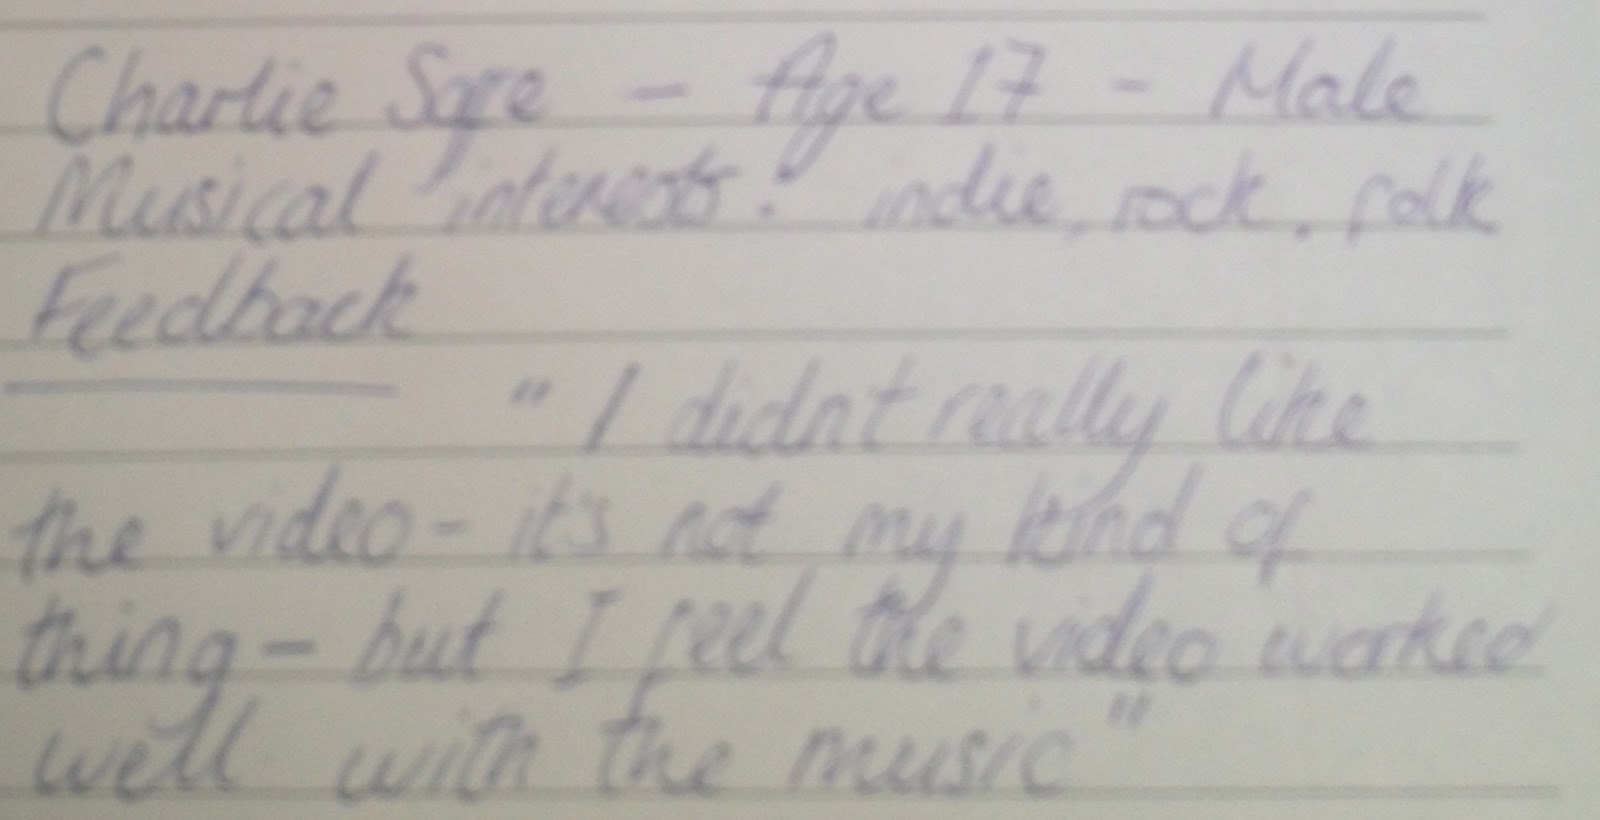 Charlie – Age 17 – Male
Musical interests: indie, rock, folk
Feedback
"I didnt really like
the video – it's not my kind of
thing – but I feel the video worked
well with the music"